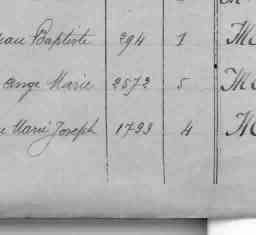 Baptiste 294 1 M
Ange Marie 2572 5 M
Marie Joseph 1793 4 M